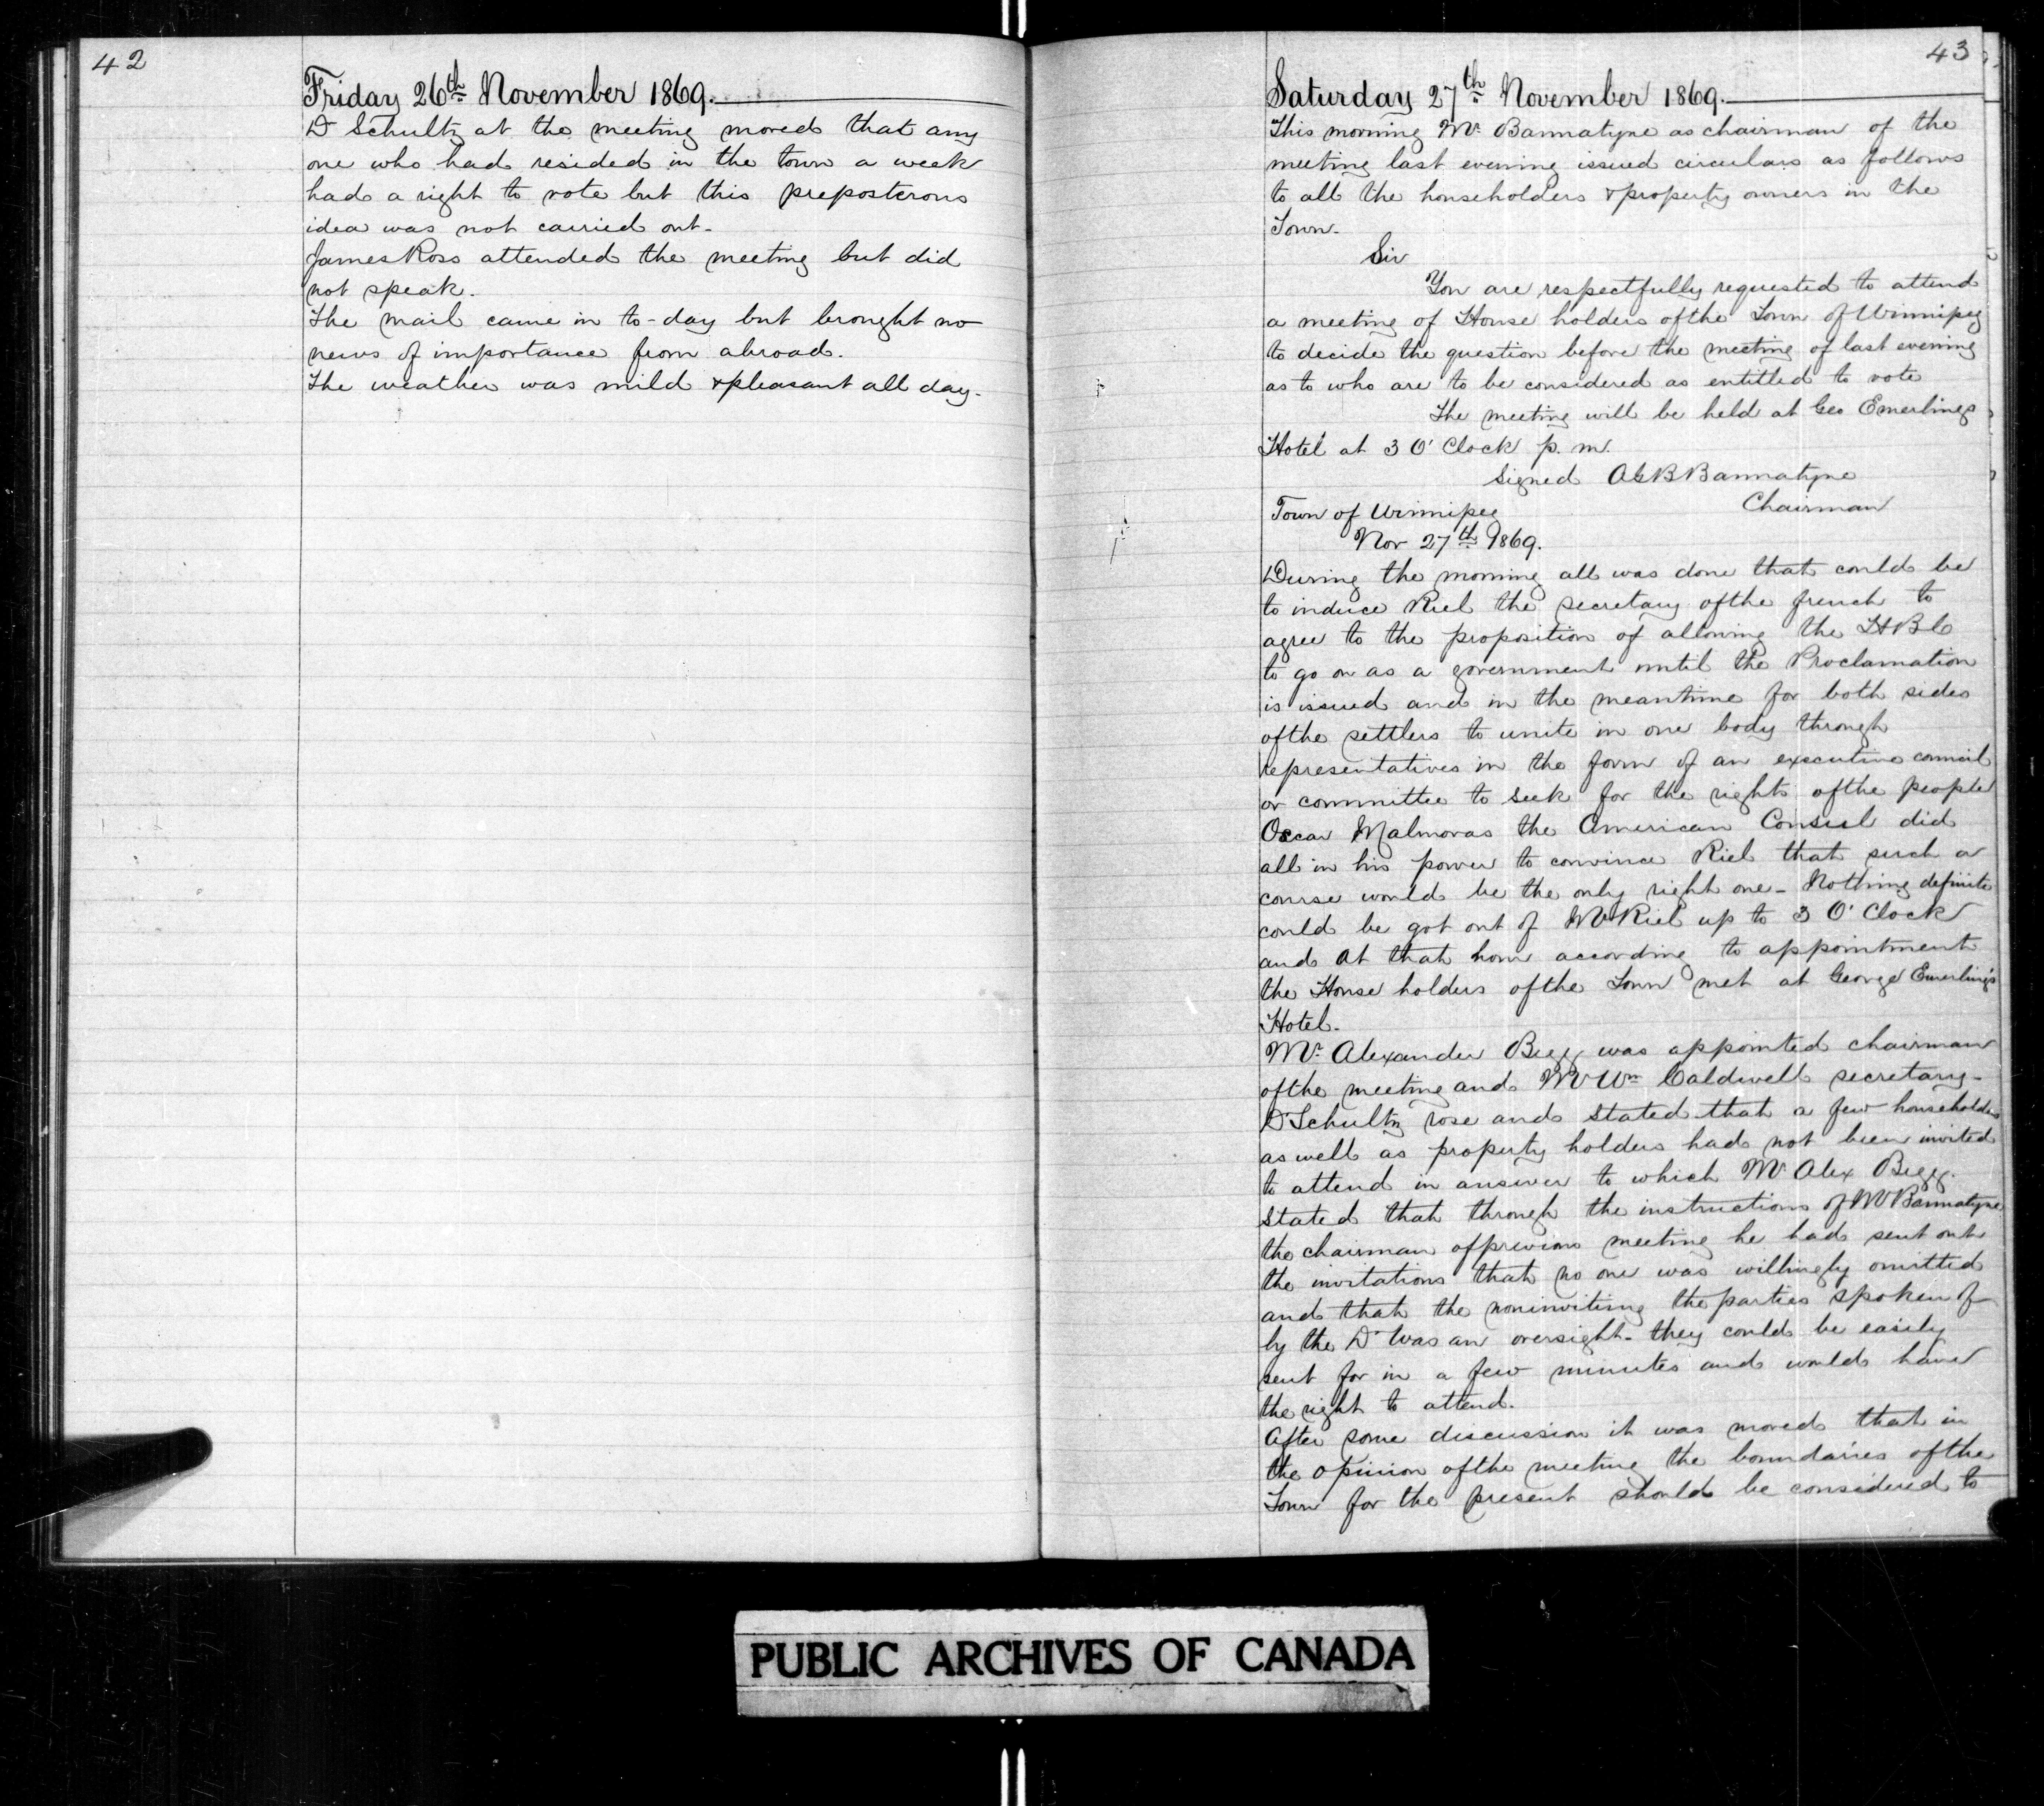 42
Friday 26th November 1869.
Dr Schultz at the meeting moved that any
one who had resided in the town a week
had a right to vote but this preposterous
idea was not carried out-
James Ross attended the meeting but did
not speak.
The mail came in to-day but brought no
news of importance from abroad.
The weather was mild & pleasant all day.
43
Saturday 27th November 1869.
This morning Mr. Bannatyne as chairman of the
meeting last evening issued circulars as follows
to all the householders & property owners in the
Town.
Sir
You are respectfully requested to attend
a meeting of House holders of the Town of Winnipeg
to decide the question before the meeting of last evening
as to who are to be considered as entitled to vote
The meeting will be held at Geo Emerlings
Hotel at 3 O'Clock p. m.
Signed AGB Bannatyne
Chairman
Town of Winnipeg
Nov 27th 1869.
During the morning all was done that could be
to induce Riel the secretary of the french to
agree to the proposition of allowing the HBC
to go on as a government until the Proclamation
is issued and in the meantime for both sides
of the settlers to unite in one body through
representatives in the form of an executive council
or committee to seek for the rights of the people
Oscar Malmoras the American Consul did
all in his power to convince Riel that such a
course would be the only right one- Nothing definite
could be got out of Mr Riel up to 3 O'Clock
and at that hour according to appointment
the House holders of the Town met at George Emerling's
Hotel.
Mr. Alexander Begg was appointed chairman
of the meeting and Mr Wm Caldwell secretary-
Dr Schultz rose and stated that a few householders
as well as property holders had not been invited
to attend in answer to which Mr Alex Begg.
stated that through the instructions of Mr Bannatyne
the chairman of previous meeting he had sent out
the invitations that no one was willingly omitted
and that the noninviting the parties spoken of
by the Dr was an oversight- they could be easily
sent for in a few minutes and would have
the right to attend.
After some discussion it was moved that in
the opinion of the meeting the boundaries of the
Town for the present should be considered to
PUBLIC ARCHIVES OF CANADA